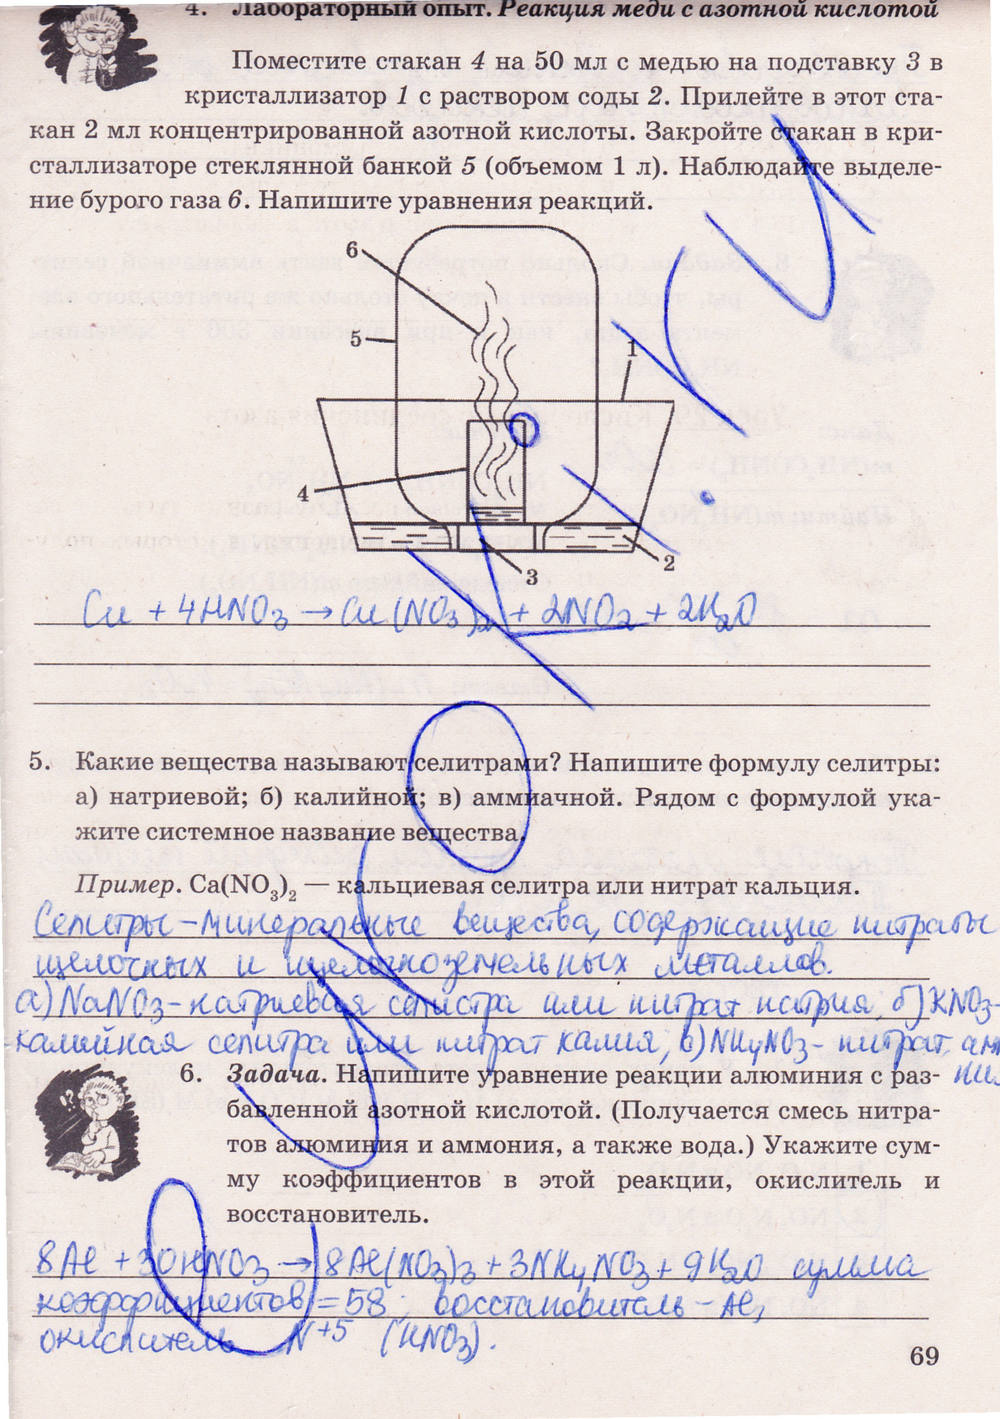 4. Лабораторный опыт. Реакция меди с азотной кислотой
Поместите стакан 4 на 50 мл с медью на подставку 3 в
кристаллизатор 1 с раствором соды 2. Прилейте в этот ста-
кан 2 мл концентрированной азотной кислоты. Закройте стакан в кри-
сталлизаторе стеклянной банкой 5 (объемом 1 л). Наблюдайте выделе-
ние бурого газа 6. Напишите уравнения реакций.
6
5
1
4
3
2
Cu + 4HNO3 → Cu(NO3)2 + 2NO2 + 2H2O
5. Какие вещества называют селитрами? Напишите формулу селитры:
а) натриевой; б) калийной; в) аммиачной. Рядом с формулой ука-
жите системное название вещества.
Пример. Ca(NO3)2 — кальциевая селитра или нитрат кальция.
Селитры - минеральные вещества, содержащие нитраты
щелочных и щелочноземельных металлов.
а) NaNO3 - натриевая селитра или нитрат натрия, б) KNO3 -
-калийная селитра или нитрат калия, в) NH4NO3 - нитрат амм
6. Задача. Напишите уравнение реакции алюминия с раз-
бавленной азотной кислотой. (Получается смесь нитра-
тов алюминия и аммония, а также вода.) Укажите сум-
му коэффициентов в этой реакции, окислитель и
восстановитель.
8Al + 30HNO3 → 8Al(NO3)3 + 3NH4NO3 + 9H2O сумма
коэффициентов = 58 восстановитель - Al,
окислитель N+5 (HNO3).
69